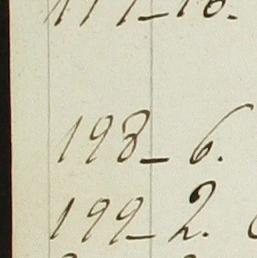 198_ 6.
199_ 2.